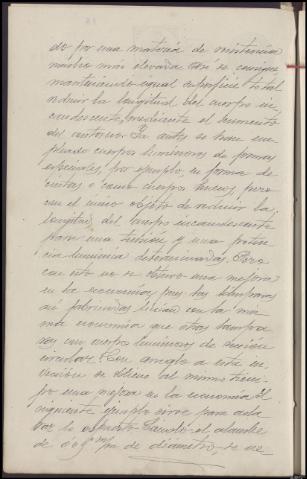 do por una materia de resistencia
mucho más elevada. Así se consigue
manteniendo igual superficie total
reducir la longitud del cuerpo in-
candescente, mediante el aumento
del contorno. Ya antes se han em-
pleado cuerpos luminosos de formas
especiales, por ejemplo, en forma de
cintas o como cuerpos huecos, pero
con el único objeto de reducir la
longitud del cuerpo incandescente
para una tensión y una poten-
cia lumínica determinadas. Pero
con esto no se obtuvo una mejora
en la economía, pues las lámparas
así fabricadas lucían con la mis-
ma economía que otras lámparas
con un cuerpo luminoso de sección
circular. Con arreglo a esta in-
vención se obtiene al mismo tiem-
po una mejora en la economía. El
siguiente ejemplo sirve para acla-
rar lo expuesto. Cuando el alambre
de m/m de diámetro, se